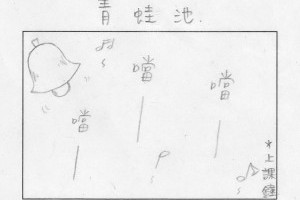 青蛙池.
噹—
噹—
噹—
*上課鐘